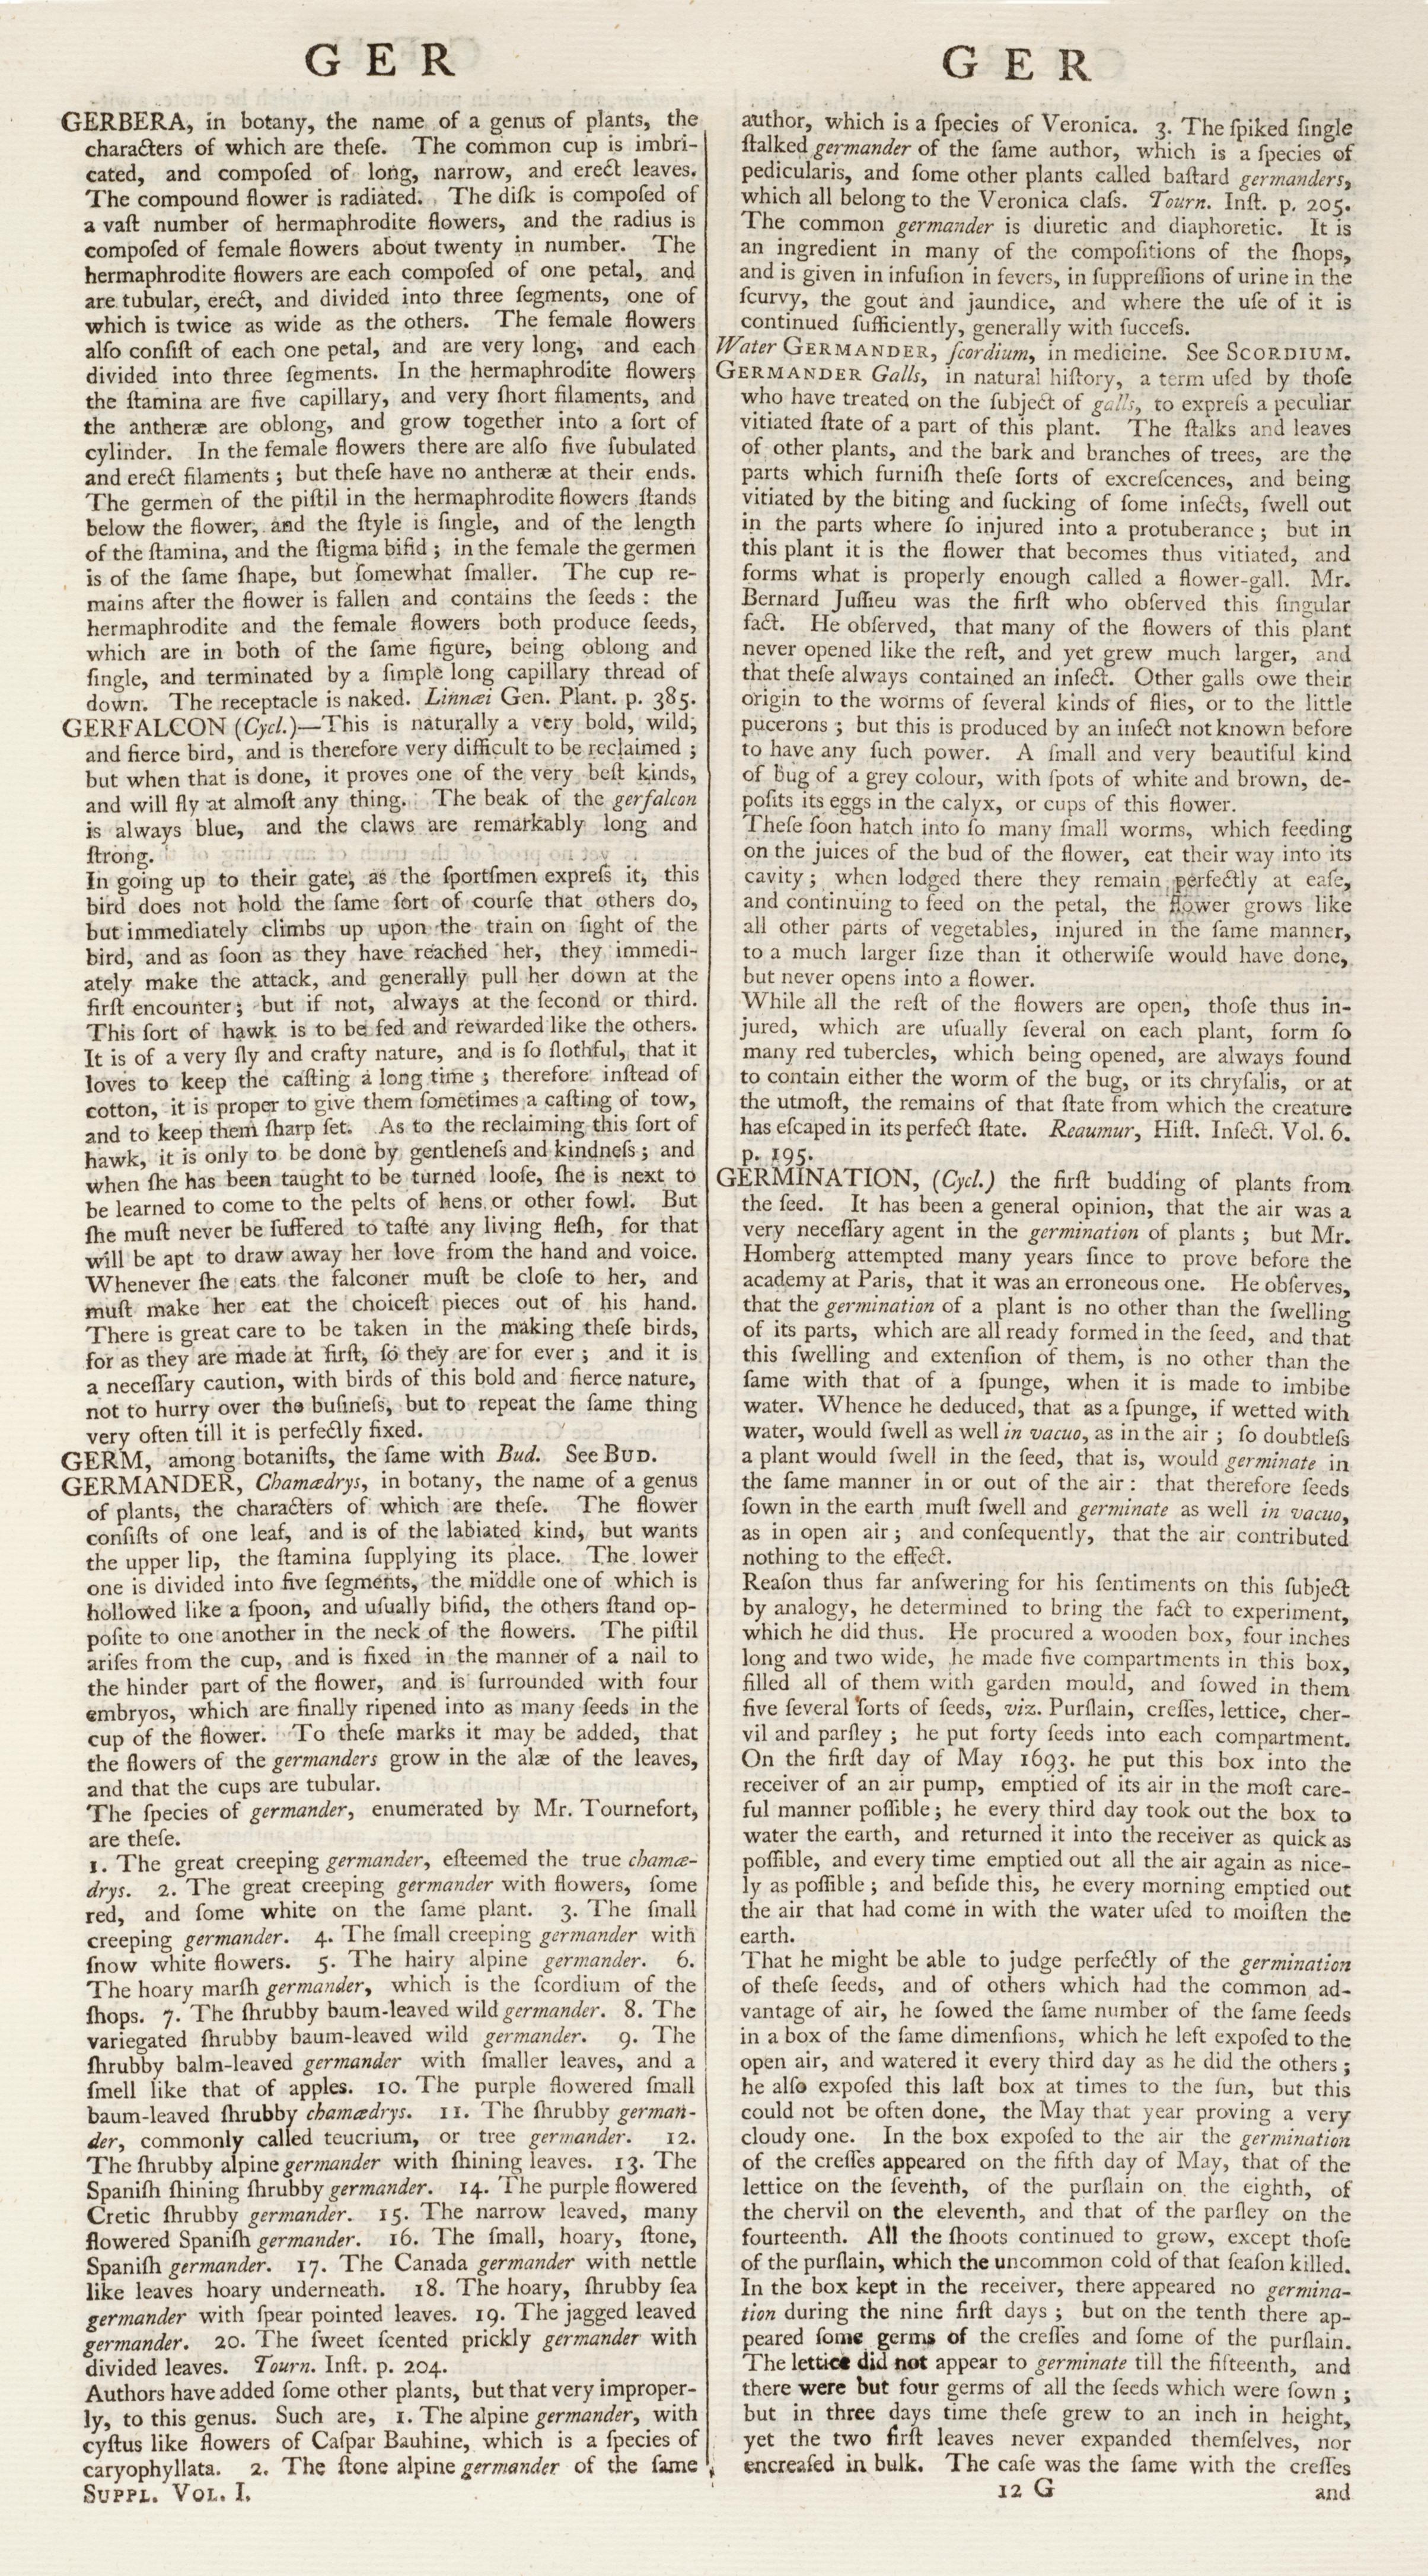 G E R
GERBERA, in botany, the name of a genus of plants, the
characters of which are theſe. The common cup is imbri-
cated, and compoſed of long, narrow, and erect leaves.
The compound flower is radiated. The diſk is compoſed of
a vaſt number of hermaphrodite flowers, and the radius is
compoſed of female flowers about twenty in number. The
hermaphrodite flowers are each compoſed of one petal, and
are tubular, erect, and divided into three ſegments, one of
which is twice as wide as the others. The female flowers
alſo conſiſt of each one petal, and are very long, and each
divided into three ſegments. In the hermaphrodite flowers
the ſtamina are five capillary, and very ſhort filaments, and
the antheræ are oblong, and grow together into a ſort of
cylinder. In the female flowers there are alſo five ſubulated
and erect filaments; but theſe have no antheræ at their ends.
The germen of the piſtil in the hermaphrodite flowers ſtands
below the flower, and the ſtyle is ſingle, and of the length
of the ſtamina, and the ſtigma bifid; in the female the germen
is of the ſame ſhape, but ſomewhat ſmaller. The cup re-
mains after the flower is fallen and contains the ſeeds: the
hermaphrodite and the female flowers both produce ſeeds,
which are in both of the ſame figure, being oblong and
ſingle, and terminated by a ſimple long capillary thread of
down. The receptacle is naked. Linnæi Gen. Plant. p. 385.
GERFALCON (Cycl.)—This is naturally a very bold, wild,
and fierce bird, and is therefore very difficult to be reclaimed;
but when that is done, it proves one of the very beſt kinds,
and will fly at almoſt any thing. The beak of the gerfalcon
is always blue, and the claws are remarkably long and
ſtrong.
In going up to their gate, as the ſportſmen expreſs it, this
bird does not hold the ſame ſort of courſe that others do,
but immediately climbs up upon the train on ſight of the
bird, and as ſoon as they have reached her, they immedi-
ately make the attack, and generally pull her down at the
firſt encounter; but if not, always at the ſecond or third.
This ſort of hawk is to be fed and rewarded like the others.
It is of a very ſly and crafty nature, and is ſo ſlothful, that it
loves to keep the caſting a long time; therefore inſtead of
cotton, it is proper to give them ſometimes a caſting of tow,
and to keep them ſharp ſet. As to the reclaiming this ſort of
hawk, it is only to be done by gentleneſs and kindneſs; and
when ſhe has been taught to be turned looſe, ſhe is next to
be learned to come to the pelts of hens or other fowl. But
ſhe muſt never be ſuffered to taſte any living fleſh, for that
will be apt to draw away her love from the hand and voice.
Whenever ſhe eats the falconer muſt be cloſe to her, and
muſt make her eat the choiceſt pieces out of his hand.
There is great care to be taken in the making theſe birds,
for as they are made at firſt, ſo they are for ever; and it is
a neceſſary caution, with birds of this bold and fierce nature,
not to hurry over the buſineſs, but to repeat the ſame thing
very often till it is perfectly fixed.
GERM, among botaniſts, the ſame with Bud. See BUD.
GERMANDER, Chamædrys, in botany, the name of a genus
of plants, the characters of which are theſe. The flower
conſiſts of one leaf, and is of the labiated kind, but wants
the upper lip, the ſtamina ſupplying its place. The lower
one is divided into five ſegments, the middle one of which is
hollowed like a ſpoon, and uſually bifid, the others ſtand op-
poſite to one another in the neck of the flowers. The piſtil
ariſes from the cup, and is fixed in the manner of a nail to
the hinder part of the flower, and is ſurrounded with four
embryos, which are finally ripened into as many ſeeds in the
cup of the flower. To theſe marks it may be added, that
the flowers of the germanders grow in the alæ of the leaves,
and that the cups are tubular.
The ſpecies of germander, enumerated by Mr. Tournefort,
are theſe.
1. The great creeping germander, eſteemed the true chamæ-
drys. 2. The great creeping germander with flowers, ſome
red, and ſome white on the ſame plant. 3. The ſmall
creeping germander. 4. The ſmall creeping germander with
ſnow white flowers. 5. The hairy alpine germander. 6.
The hoary marſh germander, which is the ſcordium of the
ſhops. 7. The ſhrubby baum-leaved wild germander. 8. The
variegated ſhrubby baum-leaved wild germander. 9. The
ſhrubby balm-leaved germander with ſmaller leaves, and a
ſmell like that of apples. 10. The purple flowered ſmall
baum-leaved ſhrubby chamædrys. 11. The ſhrubby german-
der, commonly called teucrium, or tree germander. 12.
The ſhrubby alpine germander with ſhining leaves. 13. The
Spaniſh ſhining ſhrubby germander. 14. The purple flowered
Cretic ſhrubby germander. 15. The narrow leaved, many
flowered Spaniſh germander. 16. The ſmall, hoary, ſtone,
Spaniſh germander. 17. The Canada germander with nettle
like leaves hoary underneath. 18. The hoary, ſhrubby ſea
germander with ſpear pointed leaves. 19. The jagged leaved
germander. 20. The ſweet ſcented prickly germander with
divided leaves. Tourn. Inſt. p. 204.
Authors have added ſome other plants, but that very improper-
ly, to this genus. Such are, 1. The alpine germander, with
cyſtus like flowers of Caſpar Bauhine, which is a ſpecies of
caryophyllata. 2. The ſtone alpine germander of the ſame
SUPPL. VOL. I.
G E R
author, which is a ſpecies of Veronica. 3. The ſpiked ſingle
ſtalked germander of the ſame author, which is a ſpecies of
pedicularis, and ſome other plants called baſtard germanders,
which all belong to the Veronica claſs. Tourn. Inſt. p. 205.
The common germander is diuretic and diaphoretic. It is
an ingredient in many of the compoſitions of the ſhops,
and is given in infuſion in fevers, in ſuppreſſions of urine in the
ſcurvy, the gout and jaundice, and where the uſe of it is
continued ſufficiently, generally with ſucceſs.
Water GERMANDER, ſcordium, in medicine. See SCORDIUM.
GERMANDER Galls, in natural hiſtory, a term uſed by thoſe
who have treated on the ſubject of galls, to expreſs a peculiar
vitiated ſtate of a part of this plant. The ſtalks and leaves
of other plants, and the bark and branches of trees, are the
parts which furniſh theſe ſorts of excreſcences, and being
vitiated by the biting and ſucking of ſome inſects, ſwell out
in the parts where ſo injured into a protuberance; but in
this plant it is the flower that becomes thus vitiated, and
forms what is properly enough called a flower-gall. Mr.
Bernard Juſſieu was the firſt who obſerved this ſingular
fact. He obſerved, that many of the flowers of this plant
never opened like the reſt, and yet grew much larger, and
that theſe always contained an inſect. Other galls owe their
origin to the worms of ſeveral kinds of flies, or to the little
pucerons; but this is produced by an inſect not known before
to have any ſuch power. A ſmall and very beautiful kind
of bug of a grey colour, with ſpots of white and brown, de-
poſits its eggs in the calyx, or cups of this flower.
Theſe ſoon hatch into ſo many ſmall worms, which feeding
on the juices of the bud of the flower, eat their way into its
cavity; when lodged there they remain perfectly at eaſe,
and continuing to feed on the petal, the flower grows like
all other parts of vegetables, injured in the ſame manner,
to a much larger ſize than it otherwiſe would have done,
but never opens into a flower.
While all the reſt of the flowers are open, thoſe thus in-
jured, which are uſually ſeveral on each plant, form ſo
many red tubercles, which being opened, are always found
to contain either the worm of the bug, or its chryſalis, or at
the utmoſt, the remains of that ſtate from which the creature
has eſcaped in its perfect ſtate. Reaumur, Hiſt. Inſect. Vol. 6.
p. 195.
GERMINATION, (Cycl.) the firſt budding of plants from
the ſeed. It has been a general opinion, that the air was a
very neceſſary agent in the germination of plants; but Mr.
Homberg attempted many years ſince to prove before the
academy at Paris, that it was an erroneous one. He obſerves,
that the germination of a plant is no other than the ſwelling
of its parts, which are all ready formed in the ſeed, and that
this ſwelling and extenſion of them, is no other than the
ſame with that of a ſpunge, when it is made to imbibe
water. Whence he deduced, that as a ſpunge, if wetted with
water, would ſwell as well in vacuo, as in the air; ſo doubtleſs
a plant would ſwell in the ſeed, that is, would germinate in
the ſame manner in or out of the air: that therefore ſeeds
ſown in the earth muſt ſwell and germinate as well in vacuo,
as in open air; and conſequently, that the air contributed
nothing to the effect.
Reaſon thus far anſwering for his ſentiments on this ſubject
by analogy, he determined to bring the fact to experiment,
which he did thus. He procured a wooden box, four inches
long and two wide, he made five compartments in this box,
filled all of them with garden mould, and ſowed in them
five ſeveral ſorts of ſeeds, viz. Purſlain, creſſes, lettice, cher-
vil and parſley; he put forty ſeeds into each compartment.
On the firſt day of May 1693. he put this box into the
receiver of an air pump, emptied of its air in the moſt care-
ful manner poſſible; he every third day took out the box to
water the earth, and returned it into the receiver as quick as
poſſible, and every time emptied out all the air again as nice-
ly as poſſible; and beſide this, he every morning emptied out
the air that had come in with the water uſed to moiſten the
earth.
That he might be able to judge perfectly of the germination
of theſe ſeeds, and of others which had the common ad-
vantage of air, he ſowed the ſame number of the ſame ſeeds
in a box of the ſame dimenſions, which he left expoſed to the
open air, and watered it every third day as he did the others;
he alſo expoſed this laſt box at times to the ſun, but this
could not be often done, the May that year proving a very
cloudy one. In the box expoſed to the air the germination
of the creſſes appeared on the fifth day of May, that of the
lettice on the ſeventh, of the purſlain on the eighth, of
the chervil on the eleventh, and that of the parſley on the
fourteenth. All the ſhoots continued to grow, except thoſe
of the purſlain, which the uncommon cold of that ſeaſon killed.
In the box kept in the receiver, there appeared no germina-
tion during the nine firſt days; but on the tenth there ap-
peared ſome germs of the creſſes and ſome of the purſlain.
The lettice did not appear to germinate till the fifteenth, and
there were but four germs of all the ſeeds which were ſown;
but in three days time theſe grew to an inch in height,
yet the two firſt leaves never expanded themſelves, nor
encreaſed in bulk. The caſe was the ſame with the creſſes
12 G
and